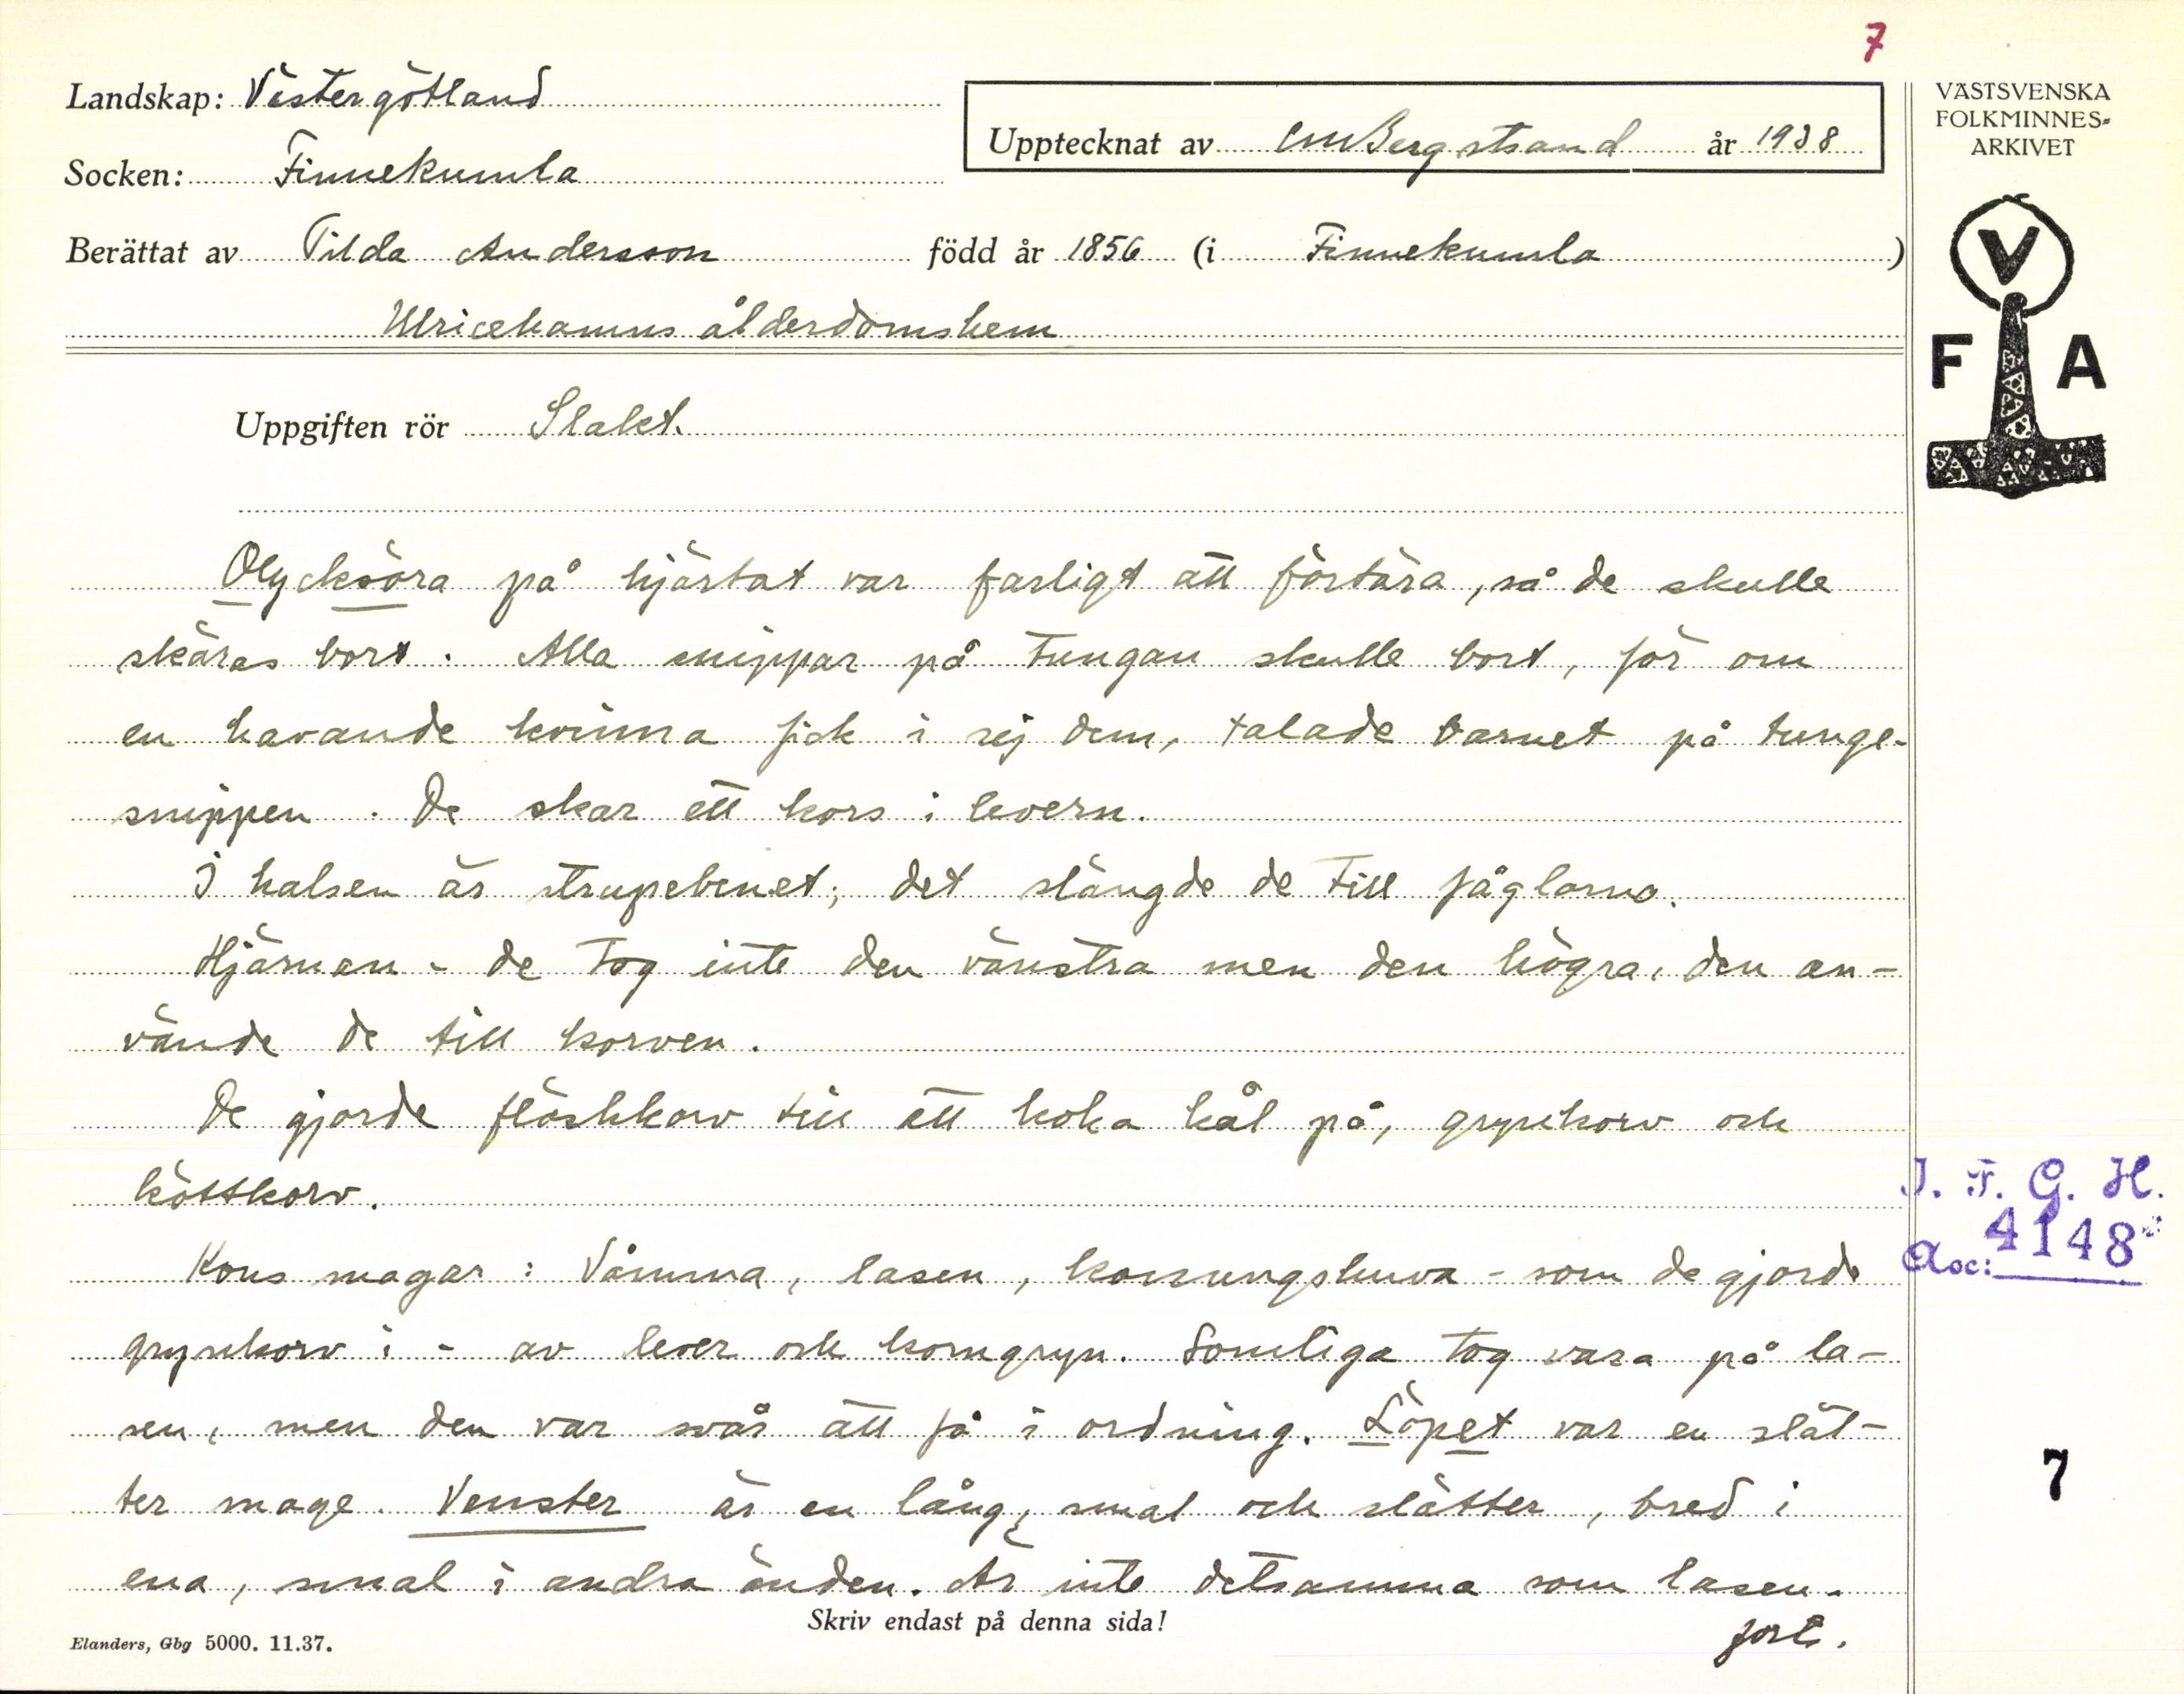 7
Landskap: Västergötland
Upptecknat av CMBergstrand år 1938
Socken: Finnekumla
Berättat av Tilda Andersson född år 1856 (i Finnekumla)
Ulricehamns ålderdomshem
VÄSTSVENSKA
FOLKMINNES-
ARKIVET
V
F A
Uppgiften rör Slakt.
Olycksöra på hjärtat var farligt att förtära, så de skulle
skäras bort. Alla snippar på tungan skulle bort, för om
en havande kvinna fick i sej dem, talade barnet på tunge-
snippen. De skar ett kors i levern.
I halsen är strupebenet; det slängde de till fåglarna.
Hjärnan - de tog inte den vänstra men den högra, den an-
vände de till korven.
De gjorde fläskkorv till att koka kål på, grynkorv och
köttkorv.
Kons magar: Våmma, lasen, konungshuva - som de gjorde
grynkorv i - av lever och korngryn. Somliga tog vara på la-
sen, men den var svår att få i ordning. Löpet var en slät-
ter mage. Venster är en lång, smal och slätter, bred i
ena, smal i andra änden. Är inte detsamma som lasen.
forts.
J. F. G. H.
Acc: 4148
7
Skriv endast på denna sida!
Elanders, Gbg 5000. 11.37.